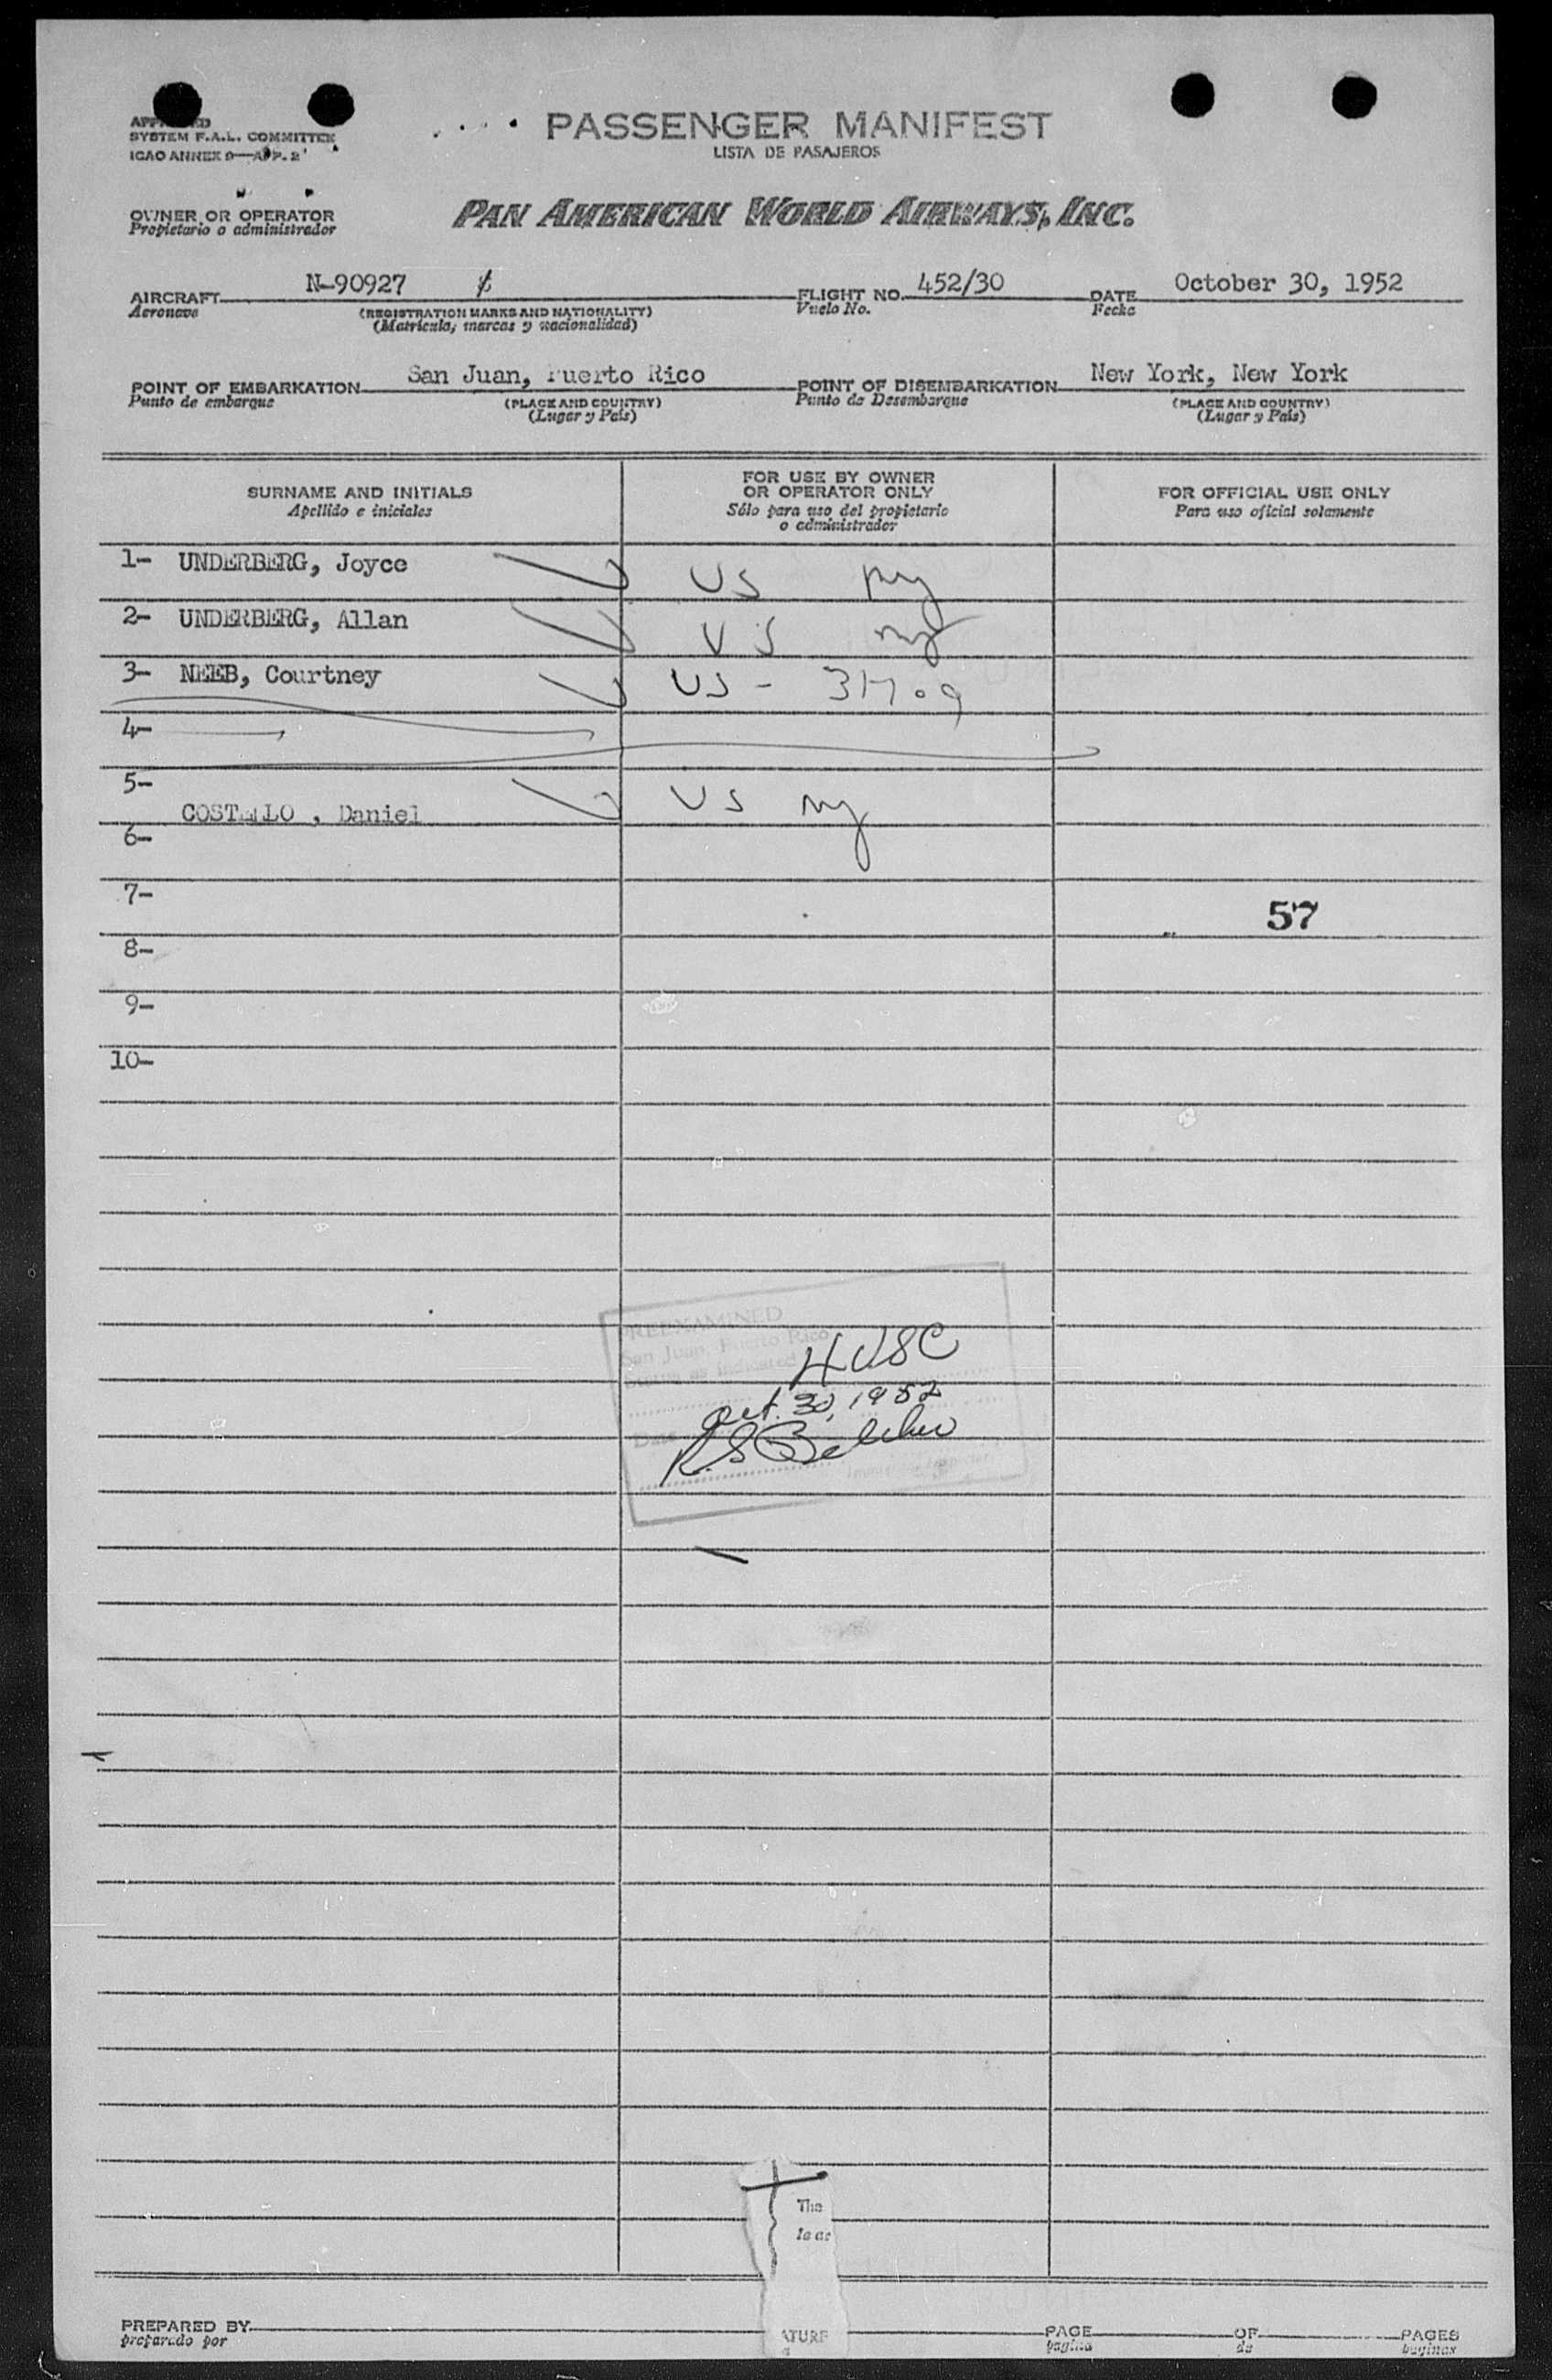 PASSENGER MANIFEST
LISTA DE PASAJEROS
SYSTEM F.A.L. COMMITTEE
ICAO ANNEX 9—APP. 2
OWNER OR OPERATOR
Propietario o administrador
PAN AMERICAN WORLD AIRWAYS, INC.
AIRCRAFT N-90927 FLIGHT NO. 452/30 DATE October 30, 1952
Aeronave (REGISTRATION MARKS AND NATIONALITY) Vuelo No. Fecha
(Matrícula, marcas y nacionalidad)
POINT OF EMBARKATION San Juan, Puerto Rico POINT OF DISEMBARKATION New York, New York
Punto de embarque (PLACE AND COUNTRY) Punto de Desembarque (PLACE AND COUNTRY)
(Lugar y País) (Lugar y País)
SURNAME AND INITIALS
Apellido e iniciales
FOR USE BY OWNER
OR OPERATOR ONLY
Sólo para uso del propietario
o administrador
FOR OFFICIAL USE ONLY
Para uso oficial solamente
1- UNDERBERG, Joyce US ny
2- UNDERBERG, Allan US ny
3- NEEB, Courtney US -
4-
5-
COSTELLO , Daniel US ny
6-
7-
57
8-
9-
10-
PREEXAMINED
San Juan, Puerto Rico
as indicated
4 USC
Oct. 30, 1952
Date
R.S. Belcher
The
PREPARED BY
preparado por
ATURE
PAGE OF PAGES
pagina de paginas